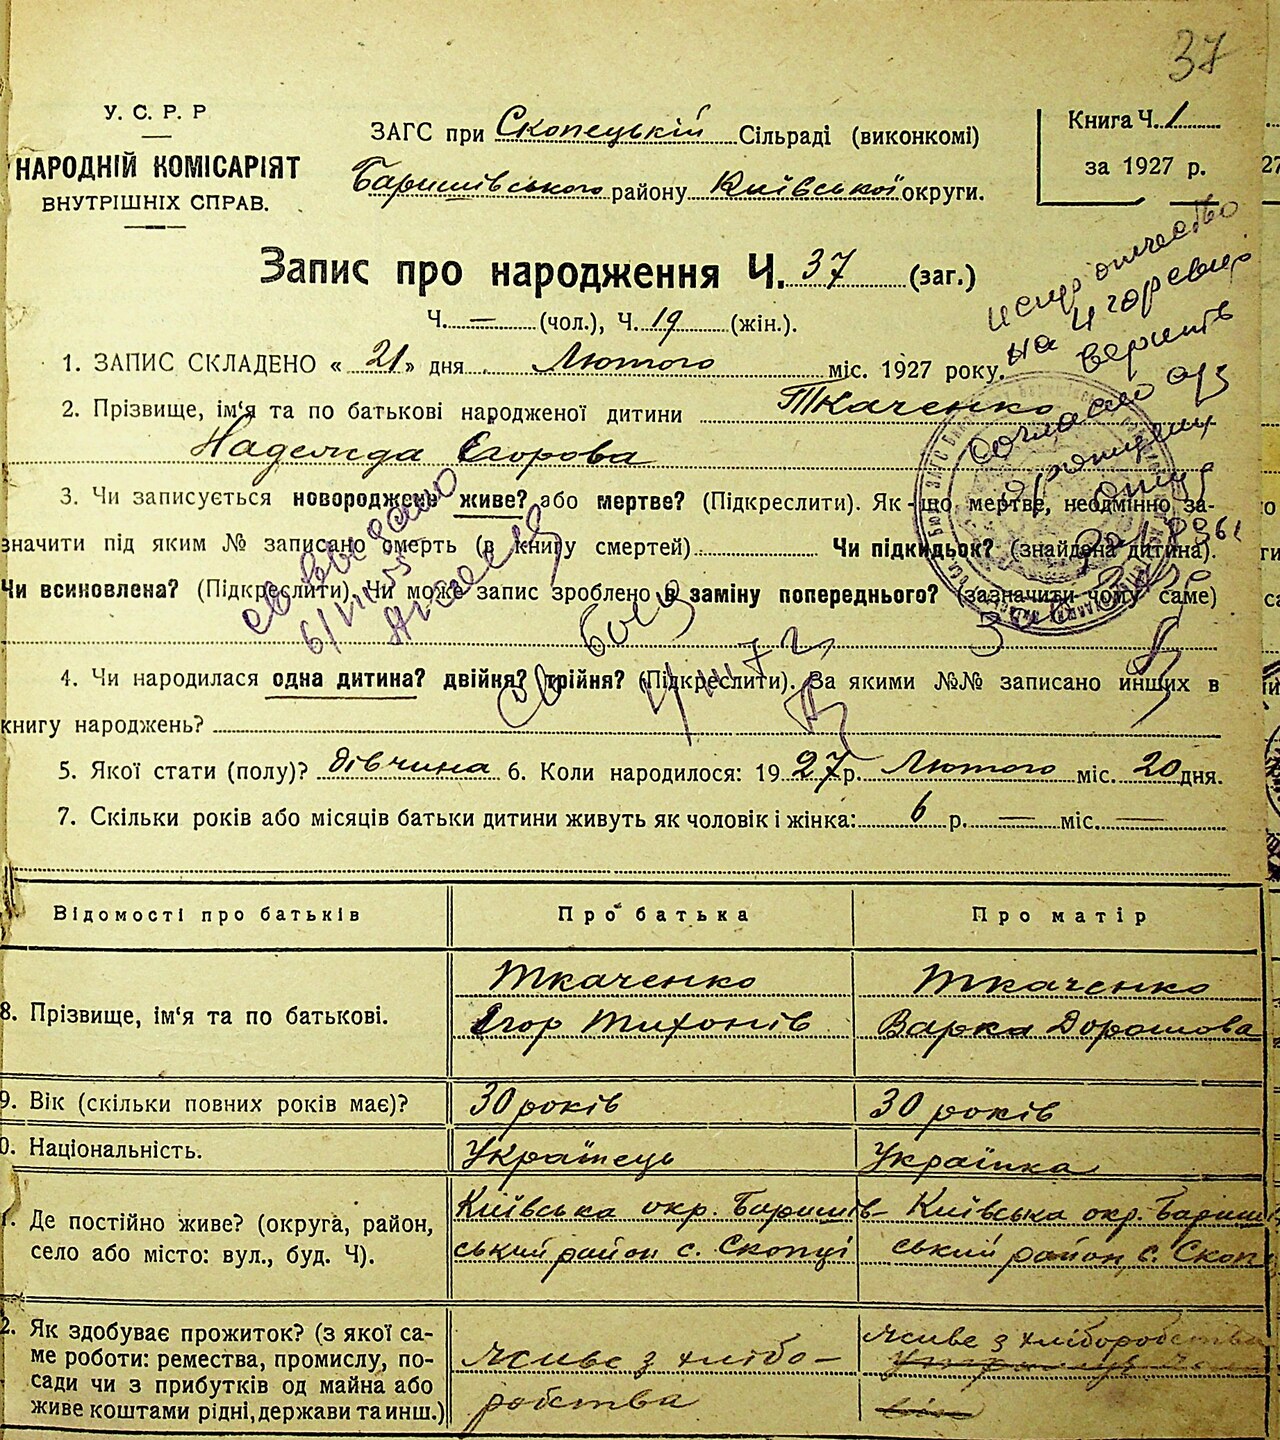 37
У. С. Р. Р
НАРОДНІЙ КОМІСАРІЯТ
ВНУТРІШНІХ СПРАВ.
ЗАГС при Скопецькій Сільраді (виконкомі)
Баришівського району Київської округи.
Книга Ч. 1
за 1927 р.
Запис про народження Ч. 37 (заг.)
Ч. — (чол.), Ч. 19 (жін.).
отчество
на Игоревну
верить
1. ЗАПИС СКЛАДЕНО « 21 » дня Лютого міс. 1927 року.
2. Прізвище, ім'я та по батькові народженої дитини Ткаченко
Надежда Єгорова
3. Чи записується новороджень живе? або мертве? (Підкреслити). Як-що мертве, неодмінно за-
значити під яким № записано смерть (в книгу смертей) Чи підкидьок? (знайдена дитина).
Чи всиновлена? (Підкреслити). Чи може запис зроблено в заміну попереднього? (зазначити чому саме)
4. Чи народилася одна дитина? двійня? трійня? (Підкреслити). За якими №№ записано инших в
книгу народжень?
5. Якої стати (полу)? дівчина 6. Коли народилося: 1927 р. Лютого міс. 20 дня.
7. Скільки років або місяців батьки дитини живуть як чоловік і жінка: 6 р. — міс. —
Відомості про батьків Про батька Про матір
8. Прізвище, ім'я та по батькові.
Ткаченко
Єгор Тихонів
Ткаченко
Варка Дорошова
9. Вік (скільки повних років має)? 30 років 30 років
0. Національність. Українець Українка
1. Де постійно живе? (округа, район,
село або місто: вул., буд. Ч).
Київська окр. Баришів-
ський район с. Скопці
Київська окр. Бариш
ський район, с. Скоп
2. Як здобуває прожиток? (з якої са-
ме роботи: ремества, промислу, по-
сади чи з прибутків од майна або
живе коштами рідні, держави та инш.)
живе з хлібо-
робства
живе з хліборобства